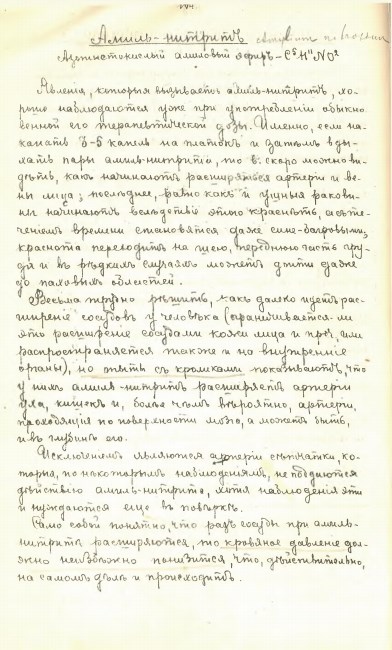 Амилъ-нитритъ
Азотистокислый амиловый эфиръ - C⁵H¹¹NO²
Явленія, которыя вызываетъ амилъ-нитритъ, хо-
рошо наблюдаются уже при употребленіи обыкно-
венной его терапевтической дозы. Именно, если на-
капать 3-5 капель на платокъ и затѣмъ вды-
хать пары амилъ-нитрита, то вскорѣ можно ви-
дѣть, какъ начинаютъ расширяться артеріи и ве-
ны лица; послѣднее, равно какъ и ушныя ракови-
ны начинаютъ вслѣдствіе этого краснѣть, а съ те-
ченіемъ времени становятся даже сине-багровыми;
краснота переходитъ на шею, переднюю часть гру-
ди и въ рѣдкихъ случаяхъ можетъ дойти даже
до паховыхъ областей.
Весьма трудно рѣшить, какъ далеко идетъ рас-
ширеніе сосудовъ у человѣка (ограничивается-ли
это расширеніе сосудами кожи лица и проч. или
распространяется также и на внутренніе
органы), но опыты съ кроликами показываютъ, что
у нихъ амилъ-нитритъ расширяетъ артеріи
уха, кишекъ и, болѣе чѣмъ вѣроятно, артеріи,
проходящія по поверхности мозга, а можетъ быть,
и въ глубинѣ его.
Исключеніемъ являются артеріи сѣтчатки, ко-
торыя, по нѣкоторымъ наблюденіямъ, не поддаются
дѣйствію амилъ-нитрита, хотя наблюденія эти
и нуждаются еще въ повѣркѣ.
Само собой понятно, что разъ сосуды при амилъ-
нитритѣ расширяются, то кровяное давленіе дол-
жно неизбѣжно понизиться, что, дѣйствительно,
на самомъ дѣлѣ и происходитъ.